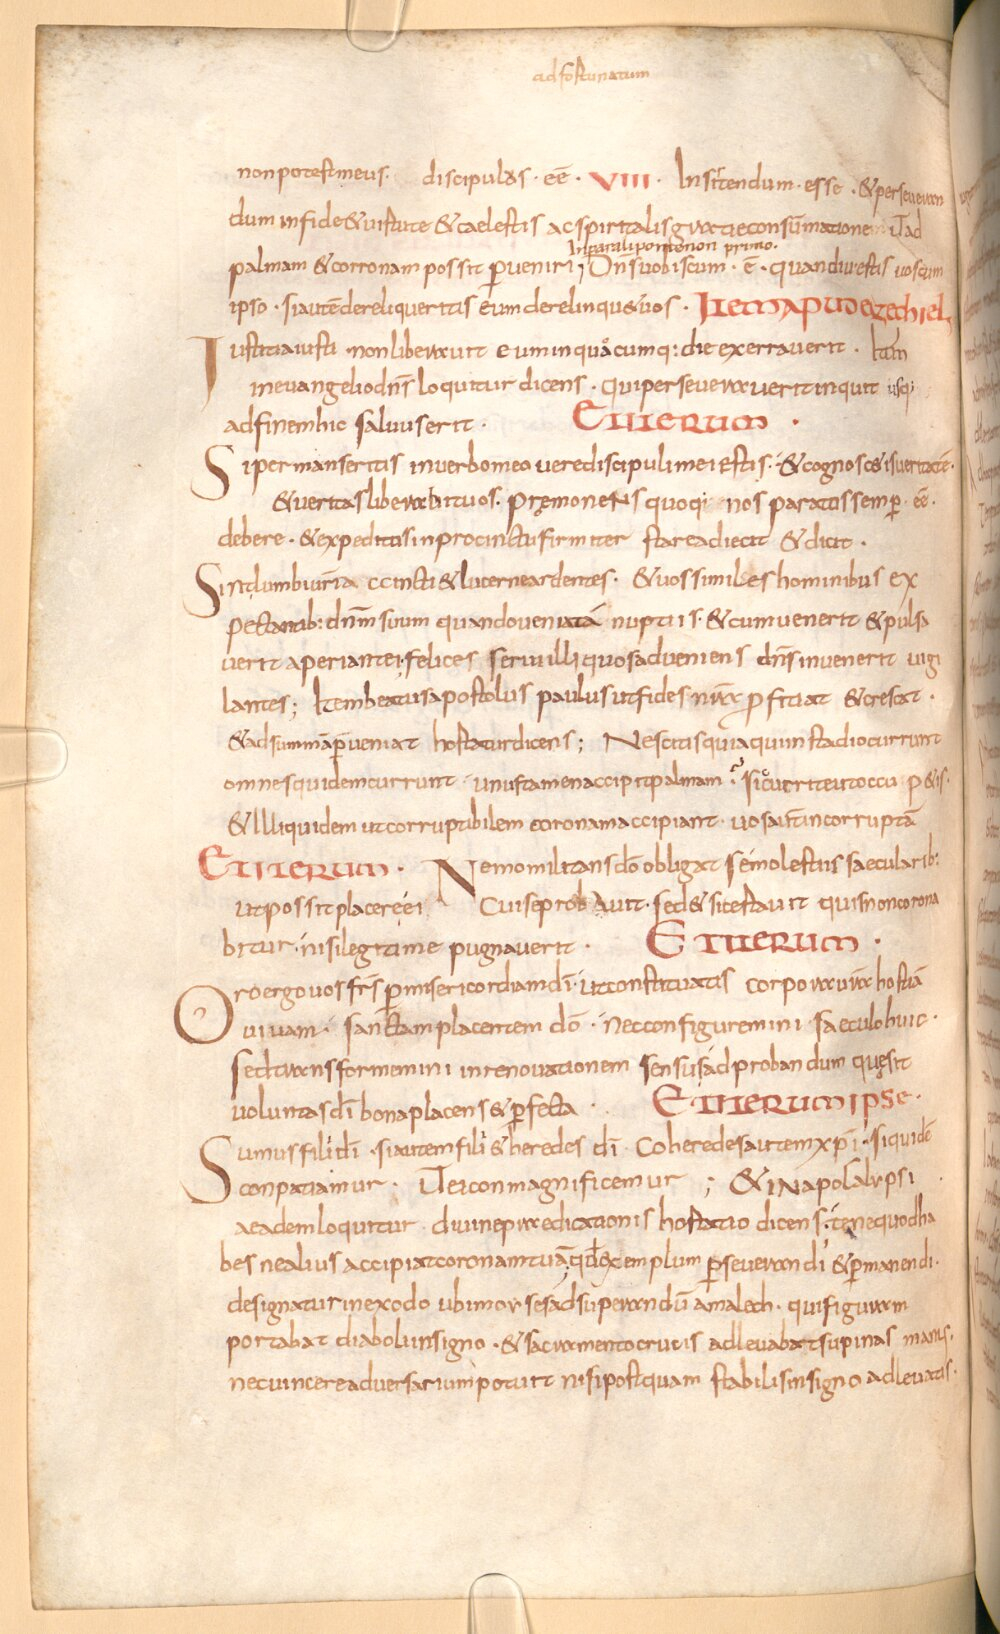 ad fortunatum
non potest meus discipulus · eē · VIII · Insistendum · esse · & perseveran
dum in fide & virtute & caelestis ac spiritalis gratiae consūmatione ut ad
In paralipomenon primo·
palmam & corronam possit ꝑveniri; Dn̄s vobiscum · ē · quandiu estis vos cum
ipso · si autē dereliqueritis eum derelinqu& vos · Item apud ezechiel
Iustitia iusti · non liberavit eum in quacumq: die exerraverit · Itē
in evangelio dn̄s loquitur dicens · qui perseveraverit inquit usq;
ad finem hic salvus erit · ETITERUM ·
Si permanseritis in verbo meo vere discipuli mei estis · & cognoscetis veritatē ·
& veritas liberabit vos · Pręmonens quoq; nos paratis semꝑ eē ·
debere · & expeditis in procinctu firmiter stare adiecit & dicit ·
Sint lumbi vr̄i accincti & lucerne ardentes · & vos similes hominibus ex
pectantib: dn̄m suum quando veniat a nuptiis · & cum venerit & pulsa
verit aperiant ei · felices servi illi quos adveniens dn̄s invenerit vigi
lantes; Item beatus apostolus paulus ut fides nr̄a proficiat & crescat ·
& ad summā ꝑveniat hortatur dicens; Nescitis quia qui in stadio currunt
omnes quidem currunt · unus tamen accipit palmam · sic currite ut occupetis ·
& Illi quidem ut corruptibilem coronam accipiant · vos autē incorruptā
ETITERUM · Nemo militans dō obligat se molestiis saecularib:
ut possit placere ei Cui se probavit · sed & si certavit quis non corona
bitur · nisi legitime pugnaverit · ETITERUM ·
Oro ergo vos frs̄ ꝑ misericordiam dī · ut constituatis corpora vr̄a hostiā
vivam · sanctam placentem dō · nec configuremini · saeculo huic ·
sed transformemini in renovationem sensus ad probandum quę sit
voluntas dī bona placens & ꝑfecta · ETITERUM IPSE ·
Sumus filii dī · si autem filii & heredes dī · Coheredes autem xp̄i · siquidē
conpatiamur · Ut et conmagnificemur ; & IN apocalypsi
aeadem loquitur divine praedicationis hortatio dicens · tene quod ha
bes ne alius accipiat coronam tuā · qđ exemplum ꝑseverandi & ꝑmanendi ·
designatur in exodo ubi moyses ad superandū amalech · qui figuram
portabat diaboli in signo · & sacramento crucis adlevabat supinas manus ·
nec vincere adversarium potuit nisi postquam stabilis in signo adlevatis ·